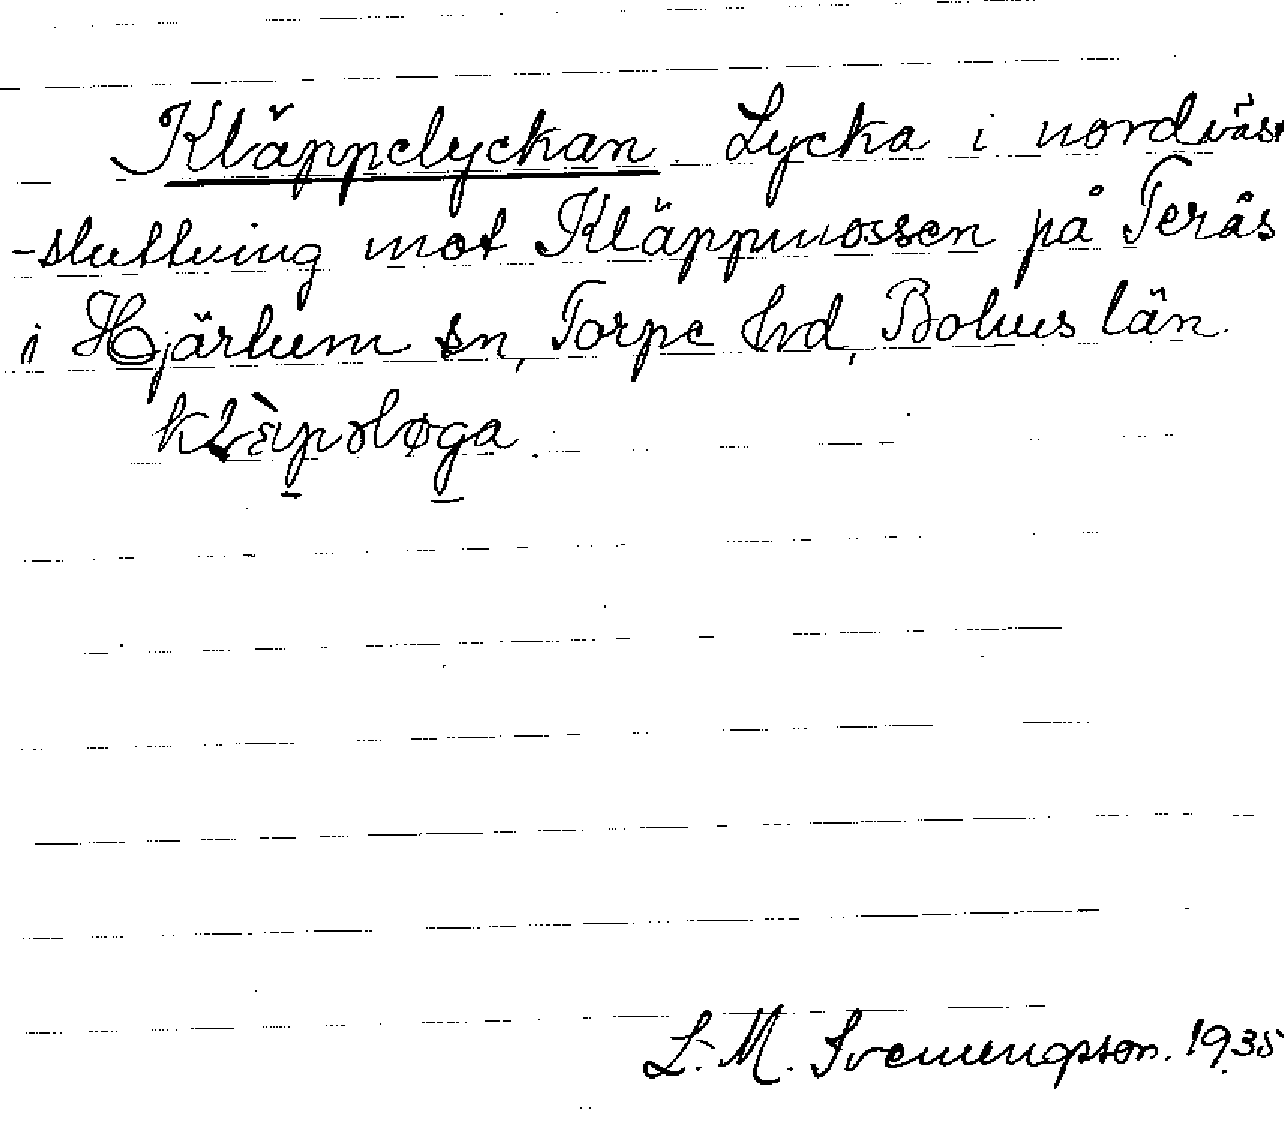 Kläppelyckan. Lycka i nordväst
-sluttning mot Kläppmossen på Terås
i Hjärtum sn, Torpe hrd, Bohus län.
L. M. Svenungsson. 1935